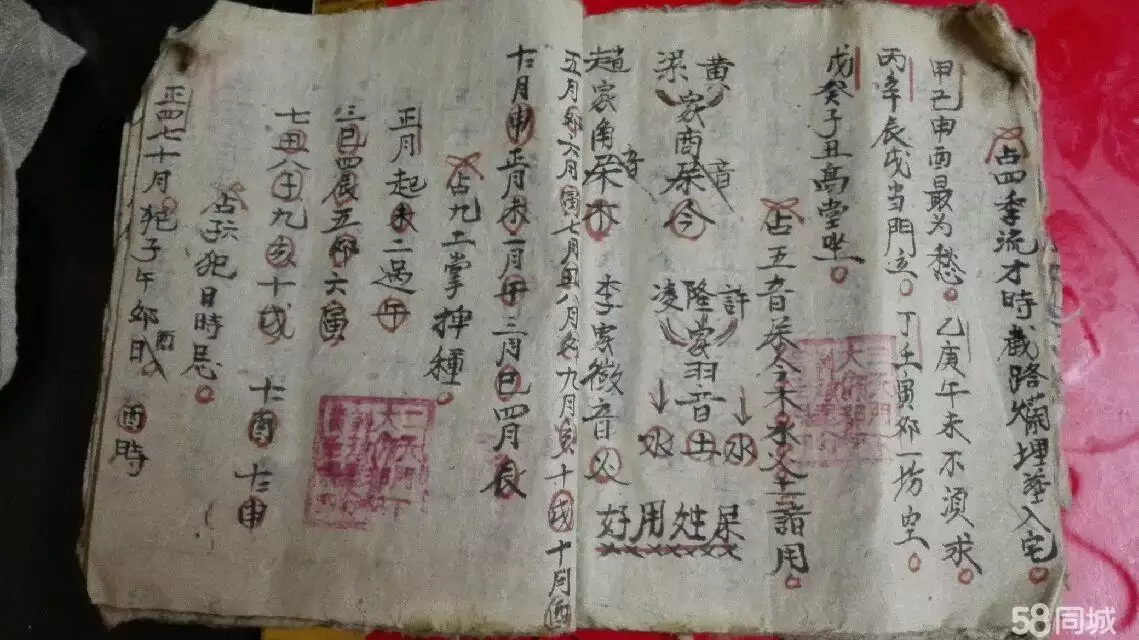 占四季流才時截路攔埋塟入宅
甲己申酉最为愁。乙庚午未不須求。
丙辛辰戌当門立。丁壬寅卯一坊空。
戊癸子丑高堂坐。
占五音夲金木水火土諸用。
黄梁家商音今 許隆凌家羽音土水水
趙家角音木 李家徵音火
好用姓呆
五月卯六月寅七月丑八月子九月亥十月戌十月酉
十二月申正月未一月午二月巳四月辰
占九工掌抻種。
正月起未二過午
三巳四辰五卯六寅
七丑八子九亥十戌 十酉十二申
占 犯日時忌。
正四七十月犯子午卯酉日 酉時
58同城